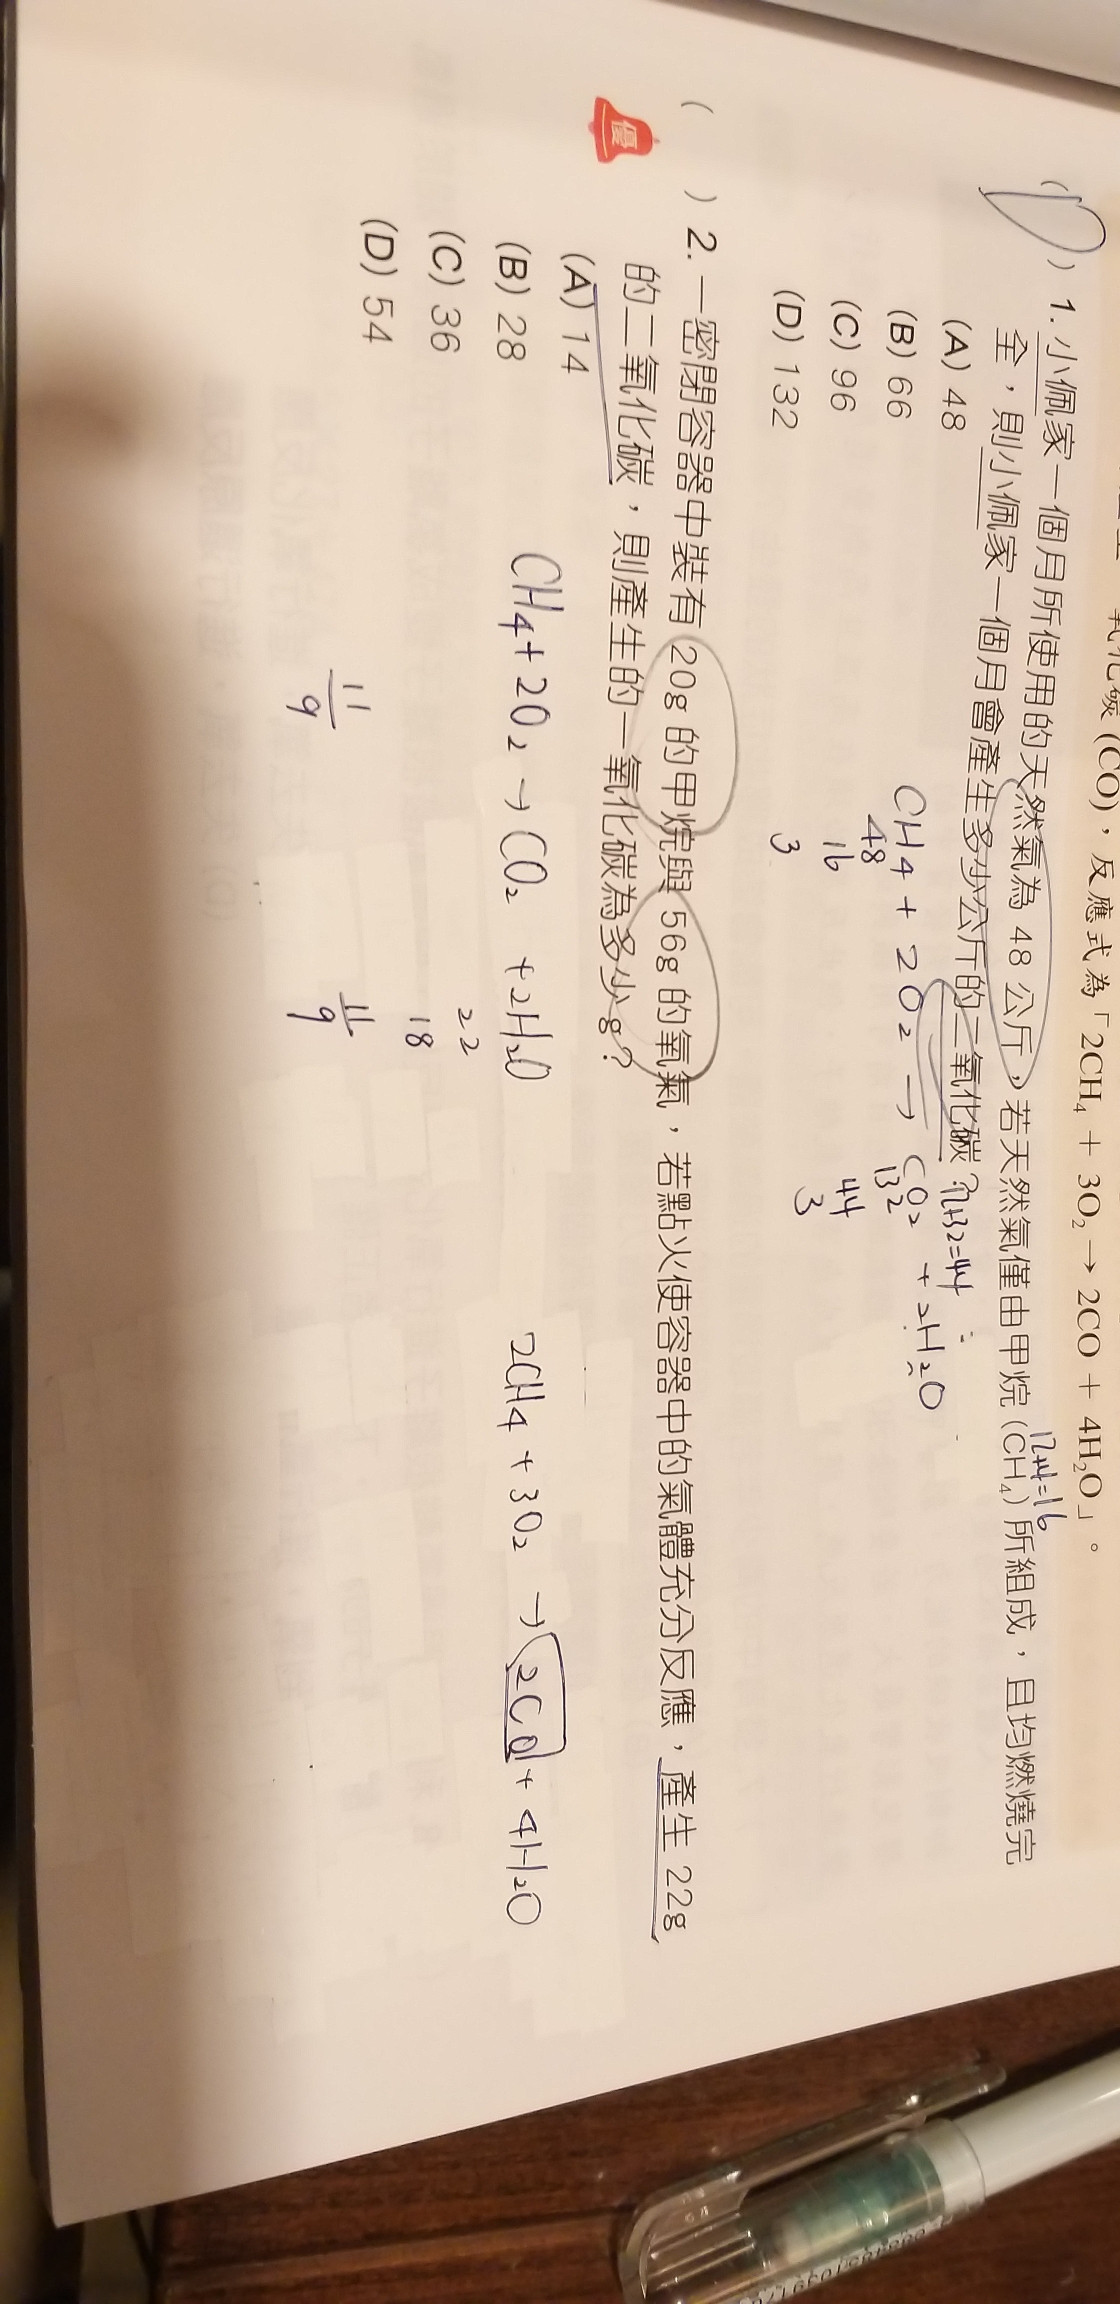 氧化碳 (CO),反應式為「2CH₄ + 3O₂ → 2CO + 4H₂O」。
(D) 1. 小佩家一個月所使用的天然氣為 48 公斤,若天然氣僅由甲烷 (CH₄) 所組成,且均燃燒完
12+4=16
全,則小佩家一個月會產生多少公斤的二氧化碳?
12+32=44
(A) 48
(B) 66
(C) 96
(D) 132
CH4 + 2O₂ → CO₂ + 2H₂O
48 132
16 44
3 3
( ) 2. 一密閉容器中裝有 20g 的甲烷與 56g 的氧氣,若點火使容器中的氣體充分反應,產生 22g
優
的二氧化碳,則產生的一氧化碳為多少 g?
(A) 14
(B) 28
(C) 36
(D) 54
CH4 + 2O₂ → CO₂ + 2H₂O
2CH4 + 3O₂ → 2CO + 4H₂O
22
18
11/9 11/9